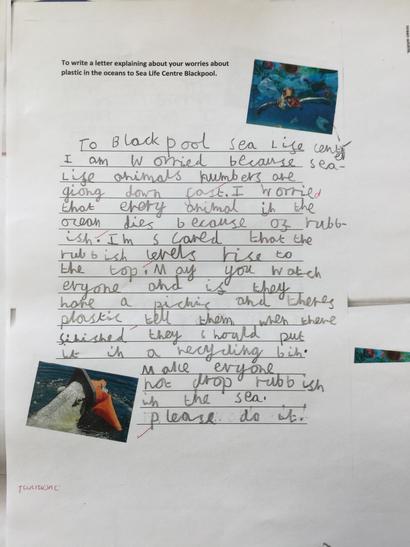 To write a letter explaining about your worries about
plastic in the oceans to Sea Life Centre Blackpool.
To Blackpool sea Life centre
I am worried because sea-
Life animals numbers are
giong down fast. I worried
that every animal in the
ocean dies because of rubb-
ish. I'm scared that the
rubbish levels rise to
the top. May you watch
eryone and is they
have a picnic and theres
plastic tell them when there
finished they should put
it in a recycling bin.
Make eryone
not drop rubbish
in the sea.
please do it.